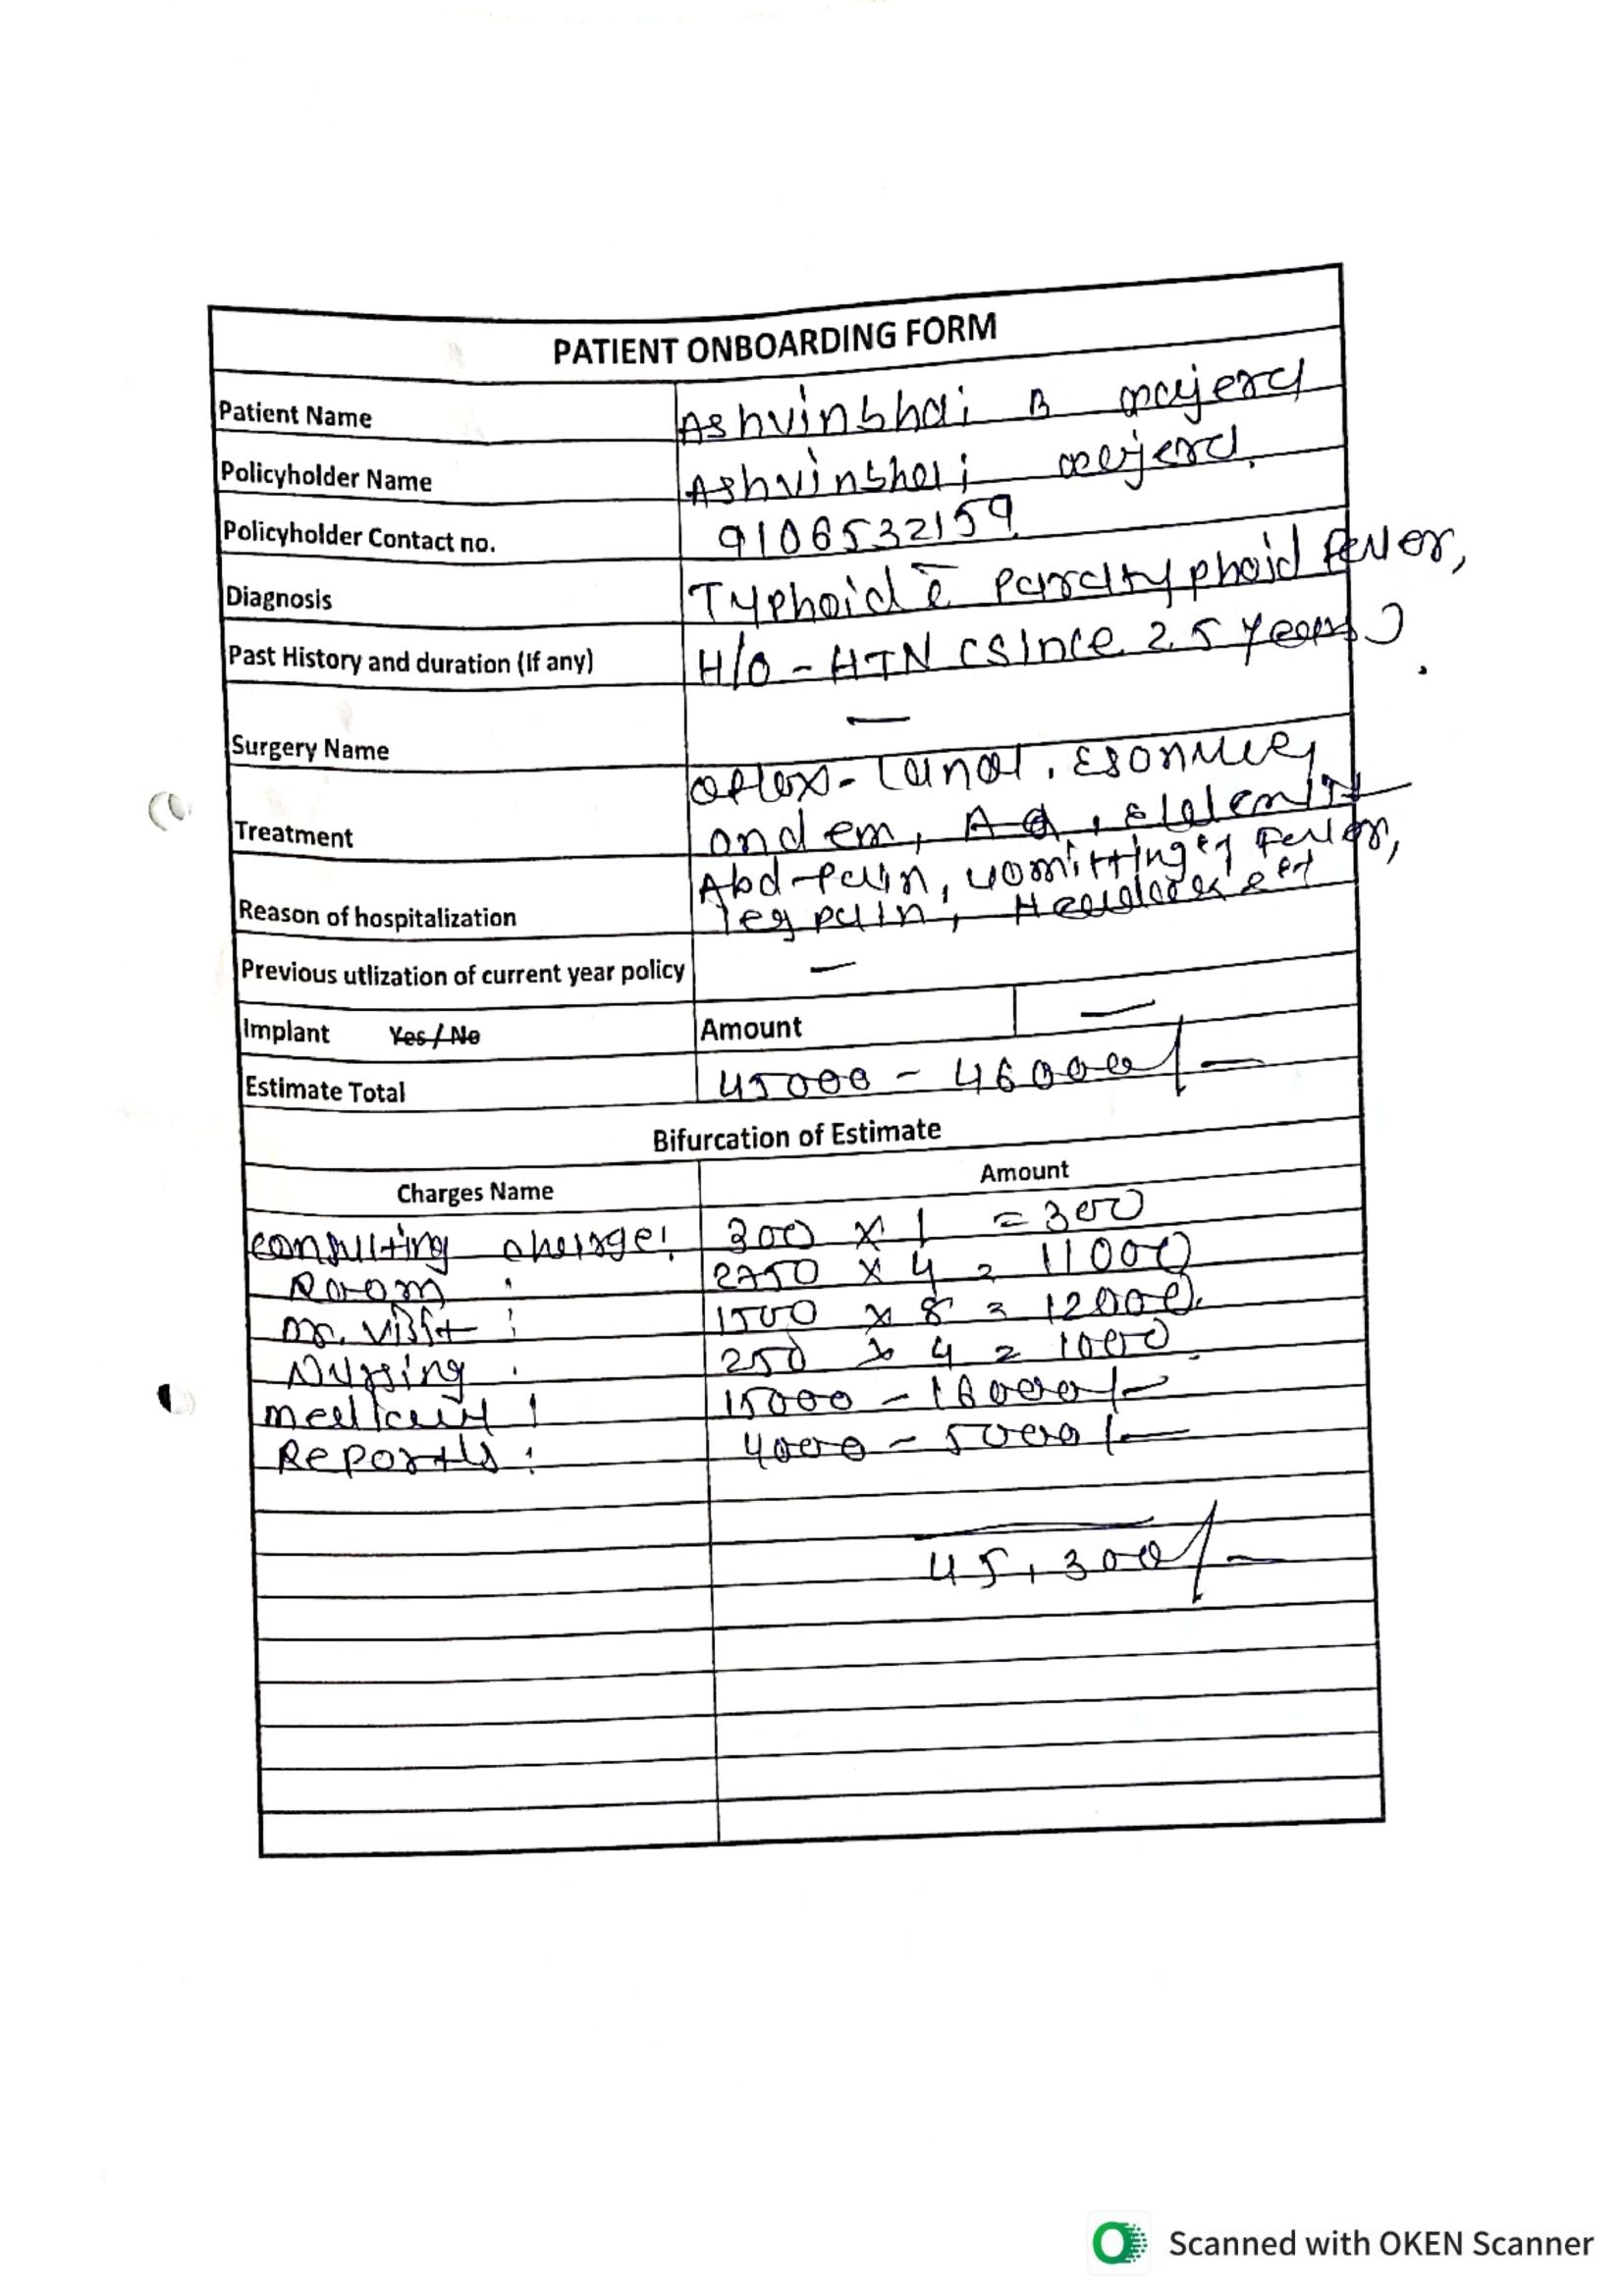 PATIENT ONBOARDING FORM
Patient Name Ashvinbhai B
Policyholder Name Ashvinbhai
Policyholder Contact no. 9106532159
Diagnosis Typhoid c̄ Paratyphoid fever,
Past History and duration (If any) H/O - HTN (since 2.5 years)
Surgery Name —
Oflox-
Treatment ondem,
Abd-pain, vomitting, Fever,
Reason of hospitalization leg pain,
Previous utlization of current year policy —
Implant Yes / No Amount —
Estimate Total 45000 - 46000/-
Bifurcation of Estimate
Charges Name Amount
consulting charge: 300 x 1 = 300
Room : 2750 x 4 = 11000
Visit : 1500 x 8 = 12000
Nursing : 250 x 4 = 1000
15000 - 16000/-
Reports : 4000 - 5000/-
45,300/-
Scanned with OKEN Scanner